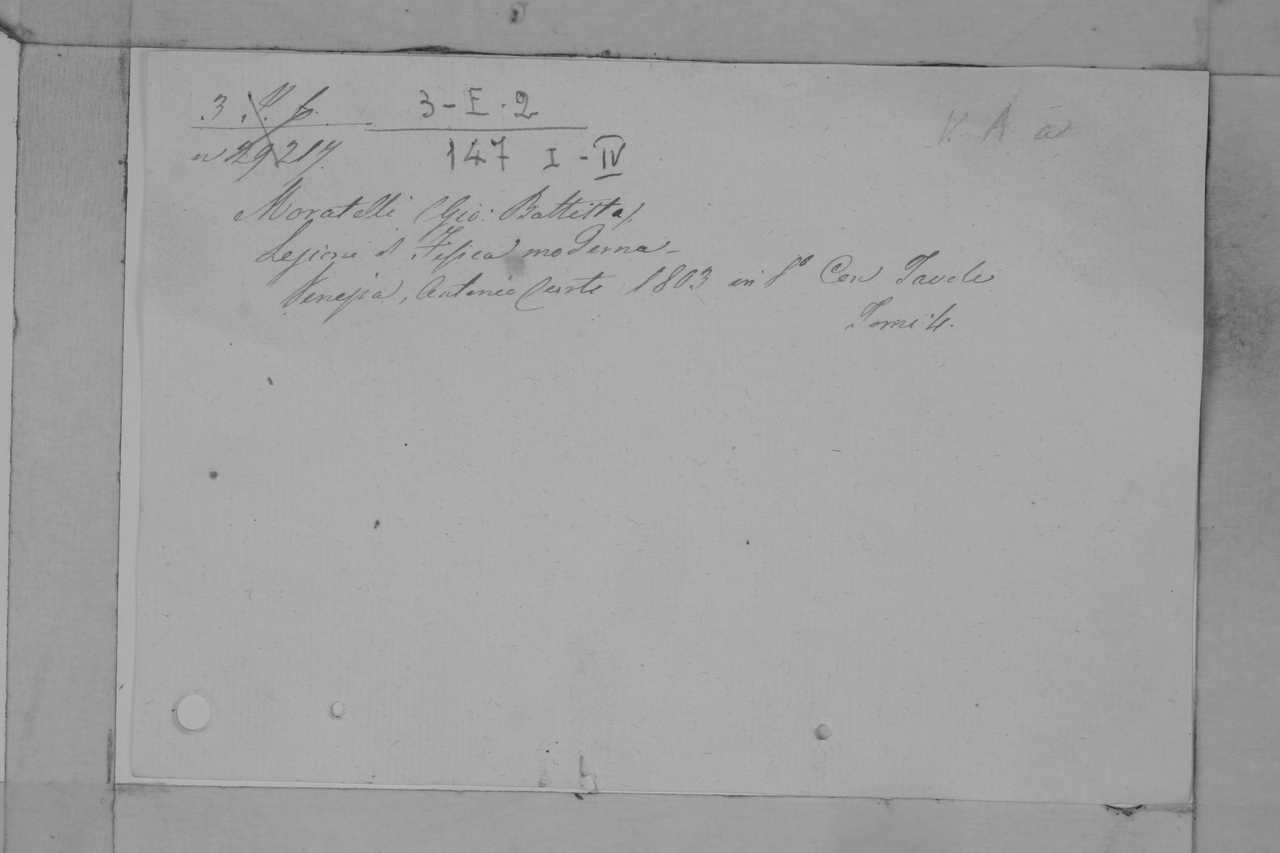 3 . 6. 3-E.2
n 29217 147 I-IV
V. A a
Moratelli (Gio: Battista).
Lezioni di Fisica moderna-
Venezia, Antonio Curti 1803 in 8° Con Tavole
Tomi 4.